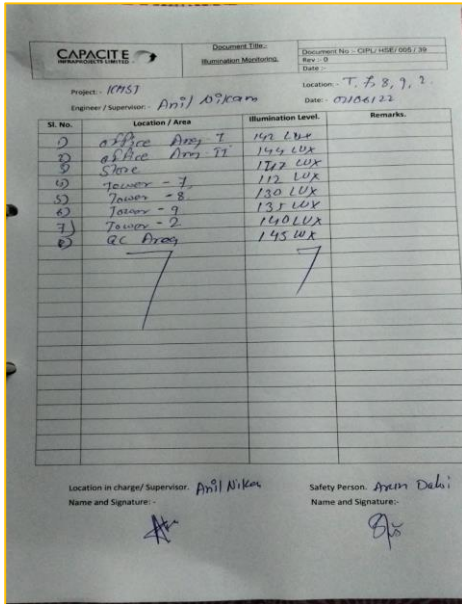 CAPACITE
INFRAPROJECTS LIMITED
Document Title:-
Illumination Monitoring.
Document No :- CIPL/ HSE/ 005 / 39
Rev :- 0
Date :-
Project:-
Location:- T. 7, 8, 9, 2.
Engineer / Supervisor:- Anil Nikam
Date:- 02/06/22
Sl. No. Location / Area Illumination Level. Remarks.
1) office Area I 142 LUX
2) office Area II 144 LUX
3) Store LUX
4) Tower - 7 112 LUX
5) Tower - 8 130 LUX
6) Tower - 9 135 LUX
7) Tower - 2 140 LUX
8) QC Area 145 LUX
Location in charge/ Supervisor. Anil Nikam Safety Person.
Name and Signature:- Name and Signature:-